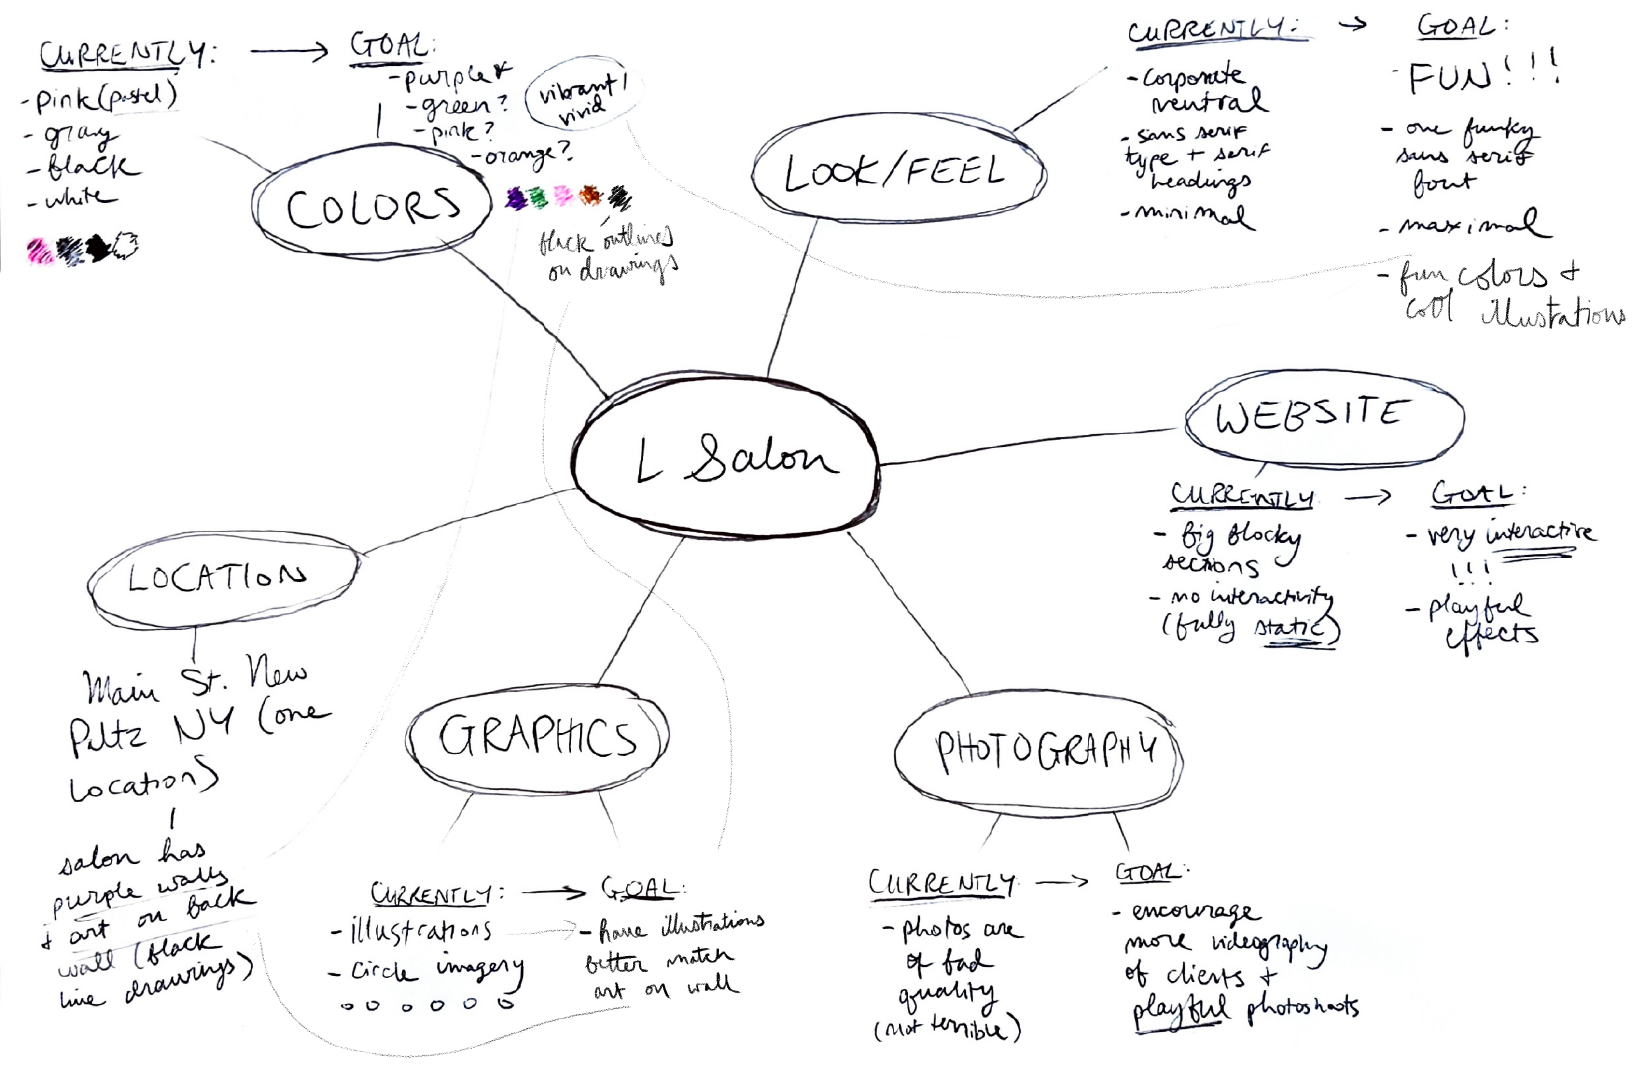 L Salon
COLORS
CURRENTLY:
- pink (pastel)
- gray
- black
- white
GOAL:
- purple*
- green?
- pink?
- orange?
vibrant /
vivid
black outlines
on drawings
LOOK/FEEL
CURRENTLY:
- corporate
neutral
- sans serif
type + serif
headings
- minimal
GOAL:
- FUN!!!
- one funky
sans serif
font
- maximal
- fun colors +
cool illustrations
WEBSITE
CURRENTLY
- big blocky
sections
- no interactivity
(fully static)
GOAL:
- very interactive
!!!
- playful
effects
LOCATION
Main St. New
Paltz NY (one
location)
salon has
purple walls
+ art on back
wall (black
line drawings)
GRAPHICS
CURRENTLY:
- illustrations
- circle imagery
GOAL:
- have illustrations
better match
art on wall
PHOTOGRAPHY
CURRENTLY:
- photos are
of bad
quality
(not terrible)
GOAL:
- encourage
more videography
of clients +
playful photoshoots